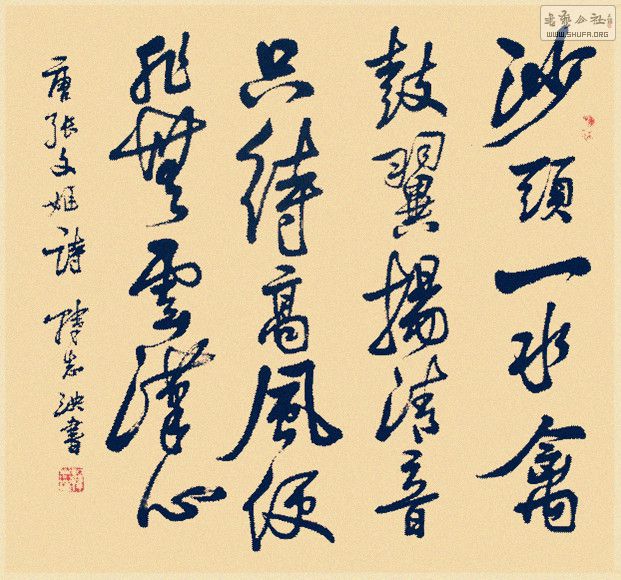 沙頭一水禽
鼓翼揚清音
只待高風便
非無雲漢心
唐張文姬詩 韓志泱書
WWW.SHUFA.ORG